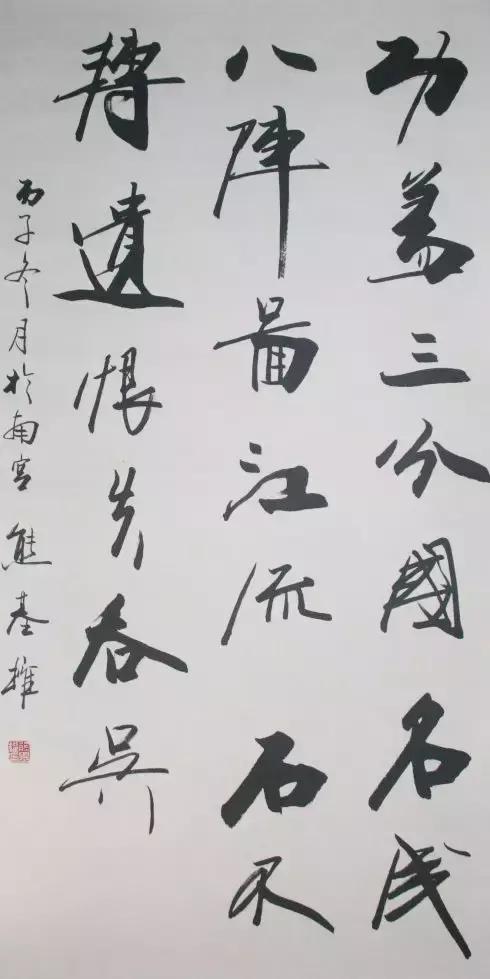 功蓋三分國名成
八陣圖江流石不
轉遺恨失吞吳
丙子冬月於南宮 熊基權